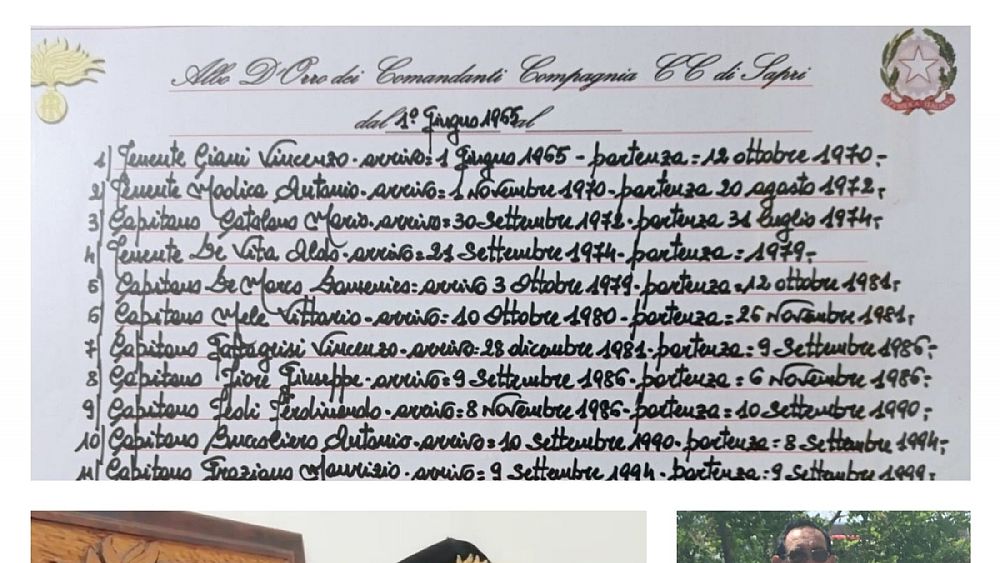 Albo D'Oro dei Comandanti Compagnia CC di Sapri
dal 1º Giugno 1965 al
1) Tenente Ciani Vincenzo - arrivo = 1 Giugno 1965 - partenza = 12 ottobre 1970;
2) Tenente Modica Antonio - arrivo = 1 Novembre 1970 - partenza 20 agosto 1972;
3) Capitano Catalano Mario - arrivo = 30 Settembre 1972 - partenza 31 luglio 1974;
4) Tenente De Vita Aldo - arrivo = 21 Settembre 1974 - partenza = 1979;
5) Capitano De Marco Domenico = arrivo 3 Ottobre 1979 - partenza = 12 ottobre 1981;
6) Capitano Mele Vittorio - arrivo = 10 Ottobre 1980 - partenza = 26 Novembre 1981;
7) Capitano Vincenzo - arrivo = 28 dicembre 1981 - partenza = 9 Settembre 1986;
8) Capitano Fiore Giuseppe - arrivo = 9 Settembre 1986 - partenza = 6 Novembre 1986;
9) Capitano Ferdinando - arrivo = 8 Novembre 1986 - partenza = 10 Settembre 1990;
10) Capitano Antonio - arrivo = 10 Settembre 1990 - partenza = 8 Settembre 1994;
11) Capitano Graziano Maurizio - arrivo = 9 Settembre 1994 - partenza = 9 Settembre 1999;